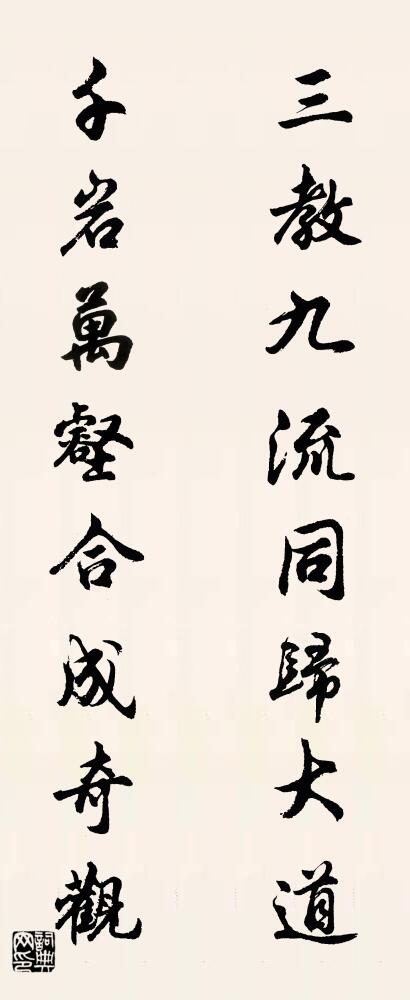 三教九流同歸大道
千岩萬壑合成奇觀
詞典網印